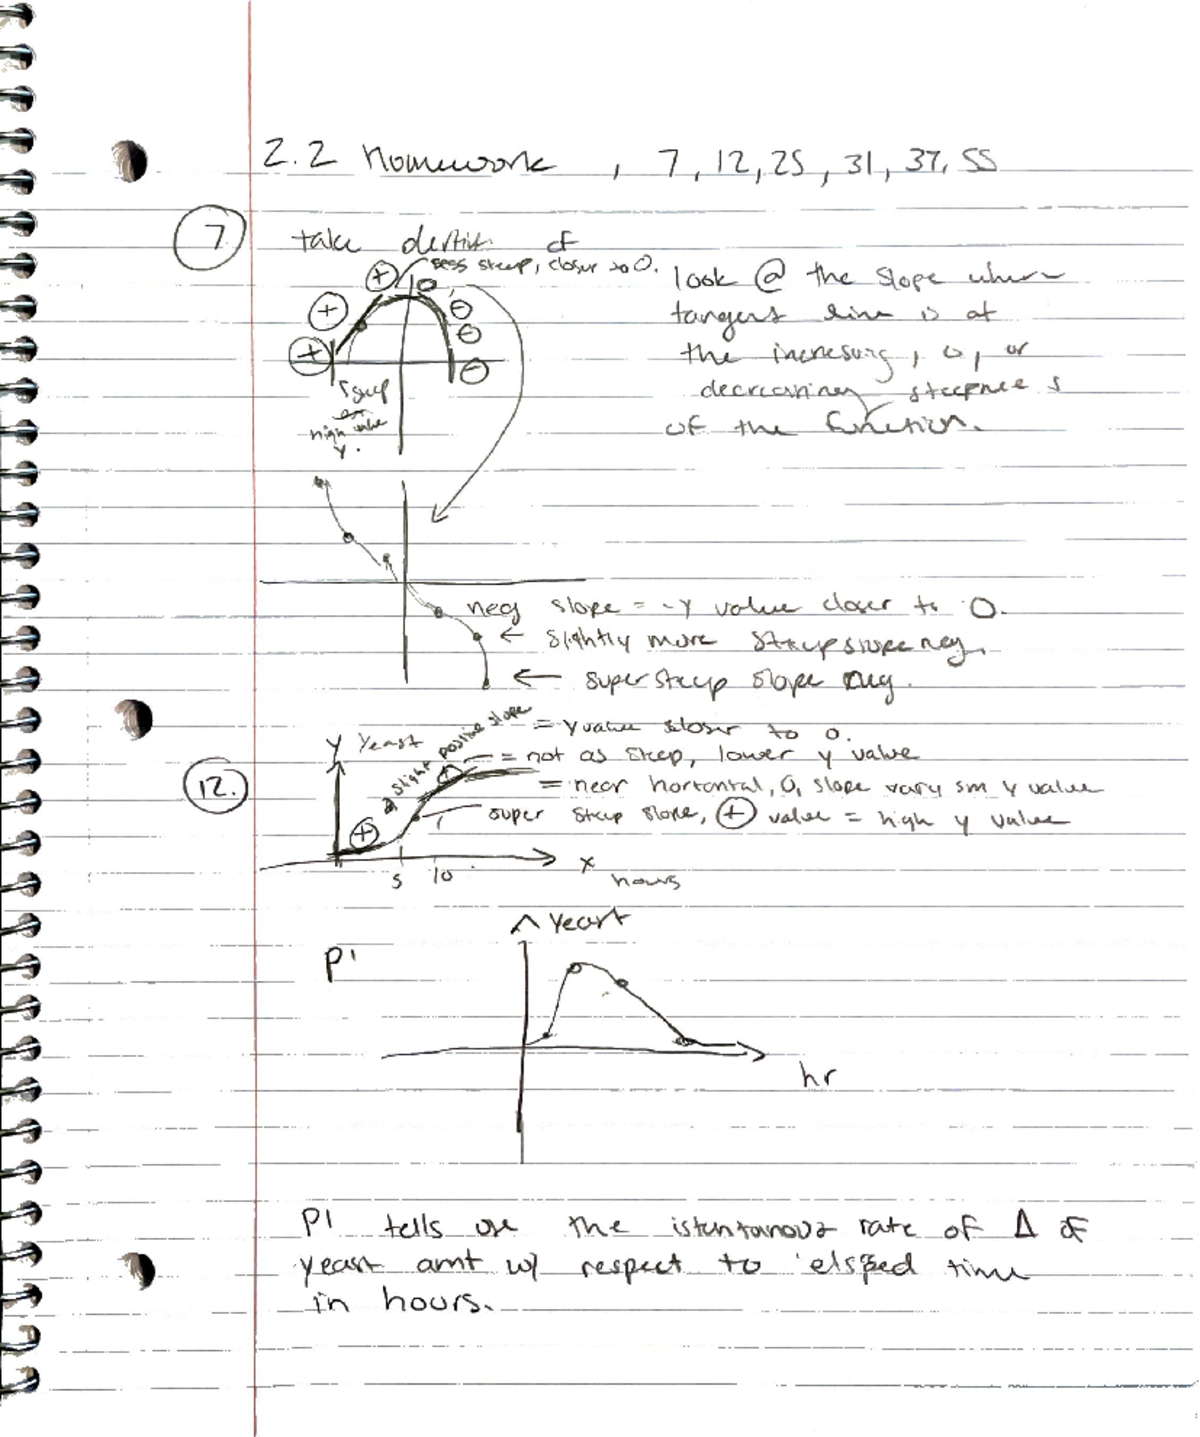 2.2 Homework, 7, 12, 25, 31, 37, 55
7. take of
less steep, closer to 0.
look @ the slope where
tangent line is at
the increasing, 0, or
decreasing steepness
of the function.
+ + + 0 - - -
steep
high value
y.
neg slope = -y value closer to 0.
← slightly more steep slope neg.
← super steep slope neg.
12. y Yeast
slight positive slope = y value closer to 0.
= not as steep, lower y value
= near horizontal, 0, slope vary sm y value
super steep slope, + value = high y value
+
5 10
x
hours
Yeast
P'
hr
P' tells us the istantanous rate of Δ of
yeast amt w/ respect to elapsed time
in hours.